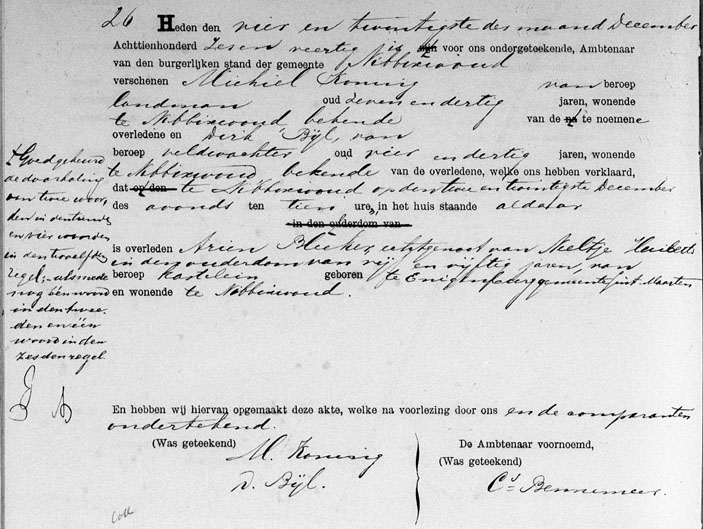 26 Heden den vier en twintigste der maand December
Achttienhonderd Zes en veertig is voor ons ondergeteekende, Ambtenaar
van den burgerlijken stand der gemeente Nibbixwoud
verschenen Michiel Koning van beroep
landman oud Zeven en dertig jaren, wonende
te Nibbixwoud bekende van de na te noemene
overledene en Dirk Bijl, van
beroep veldwachter oud vier en dertig jaren, wonende
te Nibbixwoud bekende van de overledene, welke ons hebben verklaard,
dat op den te Nibbixwoud op den twee en twintigste December
des avonds ten tien ure, in het huis staande aldaar
in den ouderdom van
is overleden Arien Bleeker, echtgenoot van Neeltje
in den ouderdom van vijf en vijftig jaren, van
beroep Kastelein geboren te Enigenburg gemeente Sint Maarten
en wonende te Nibbixwoud.
Goedgekeurd
de doorhaling
van twee woor,
den in den tiende
en vier woorden
in den twaalfden
regel, alsmede
nog één woord
in den twee
den en één
woord in den
zesden regel
En hebben wij hiervan opgemaakt deze akte, welke na voorlezing door ons en de comparanten
onderteekend.
(Was geteekend)
M. Koning
D. Bijl.
De Ambtenaar voornoemd,
(Was geteekend)
Cs Bennemeer.